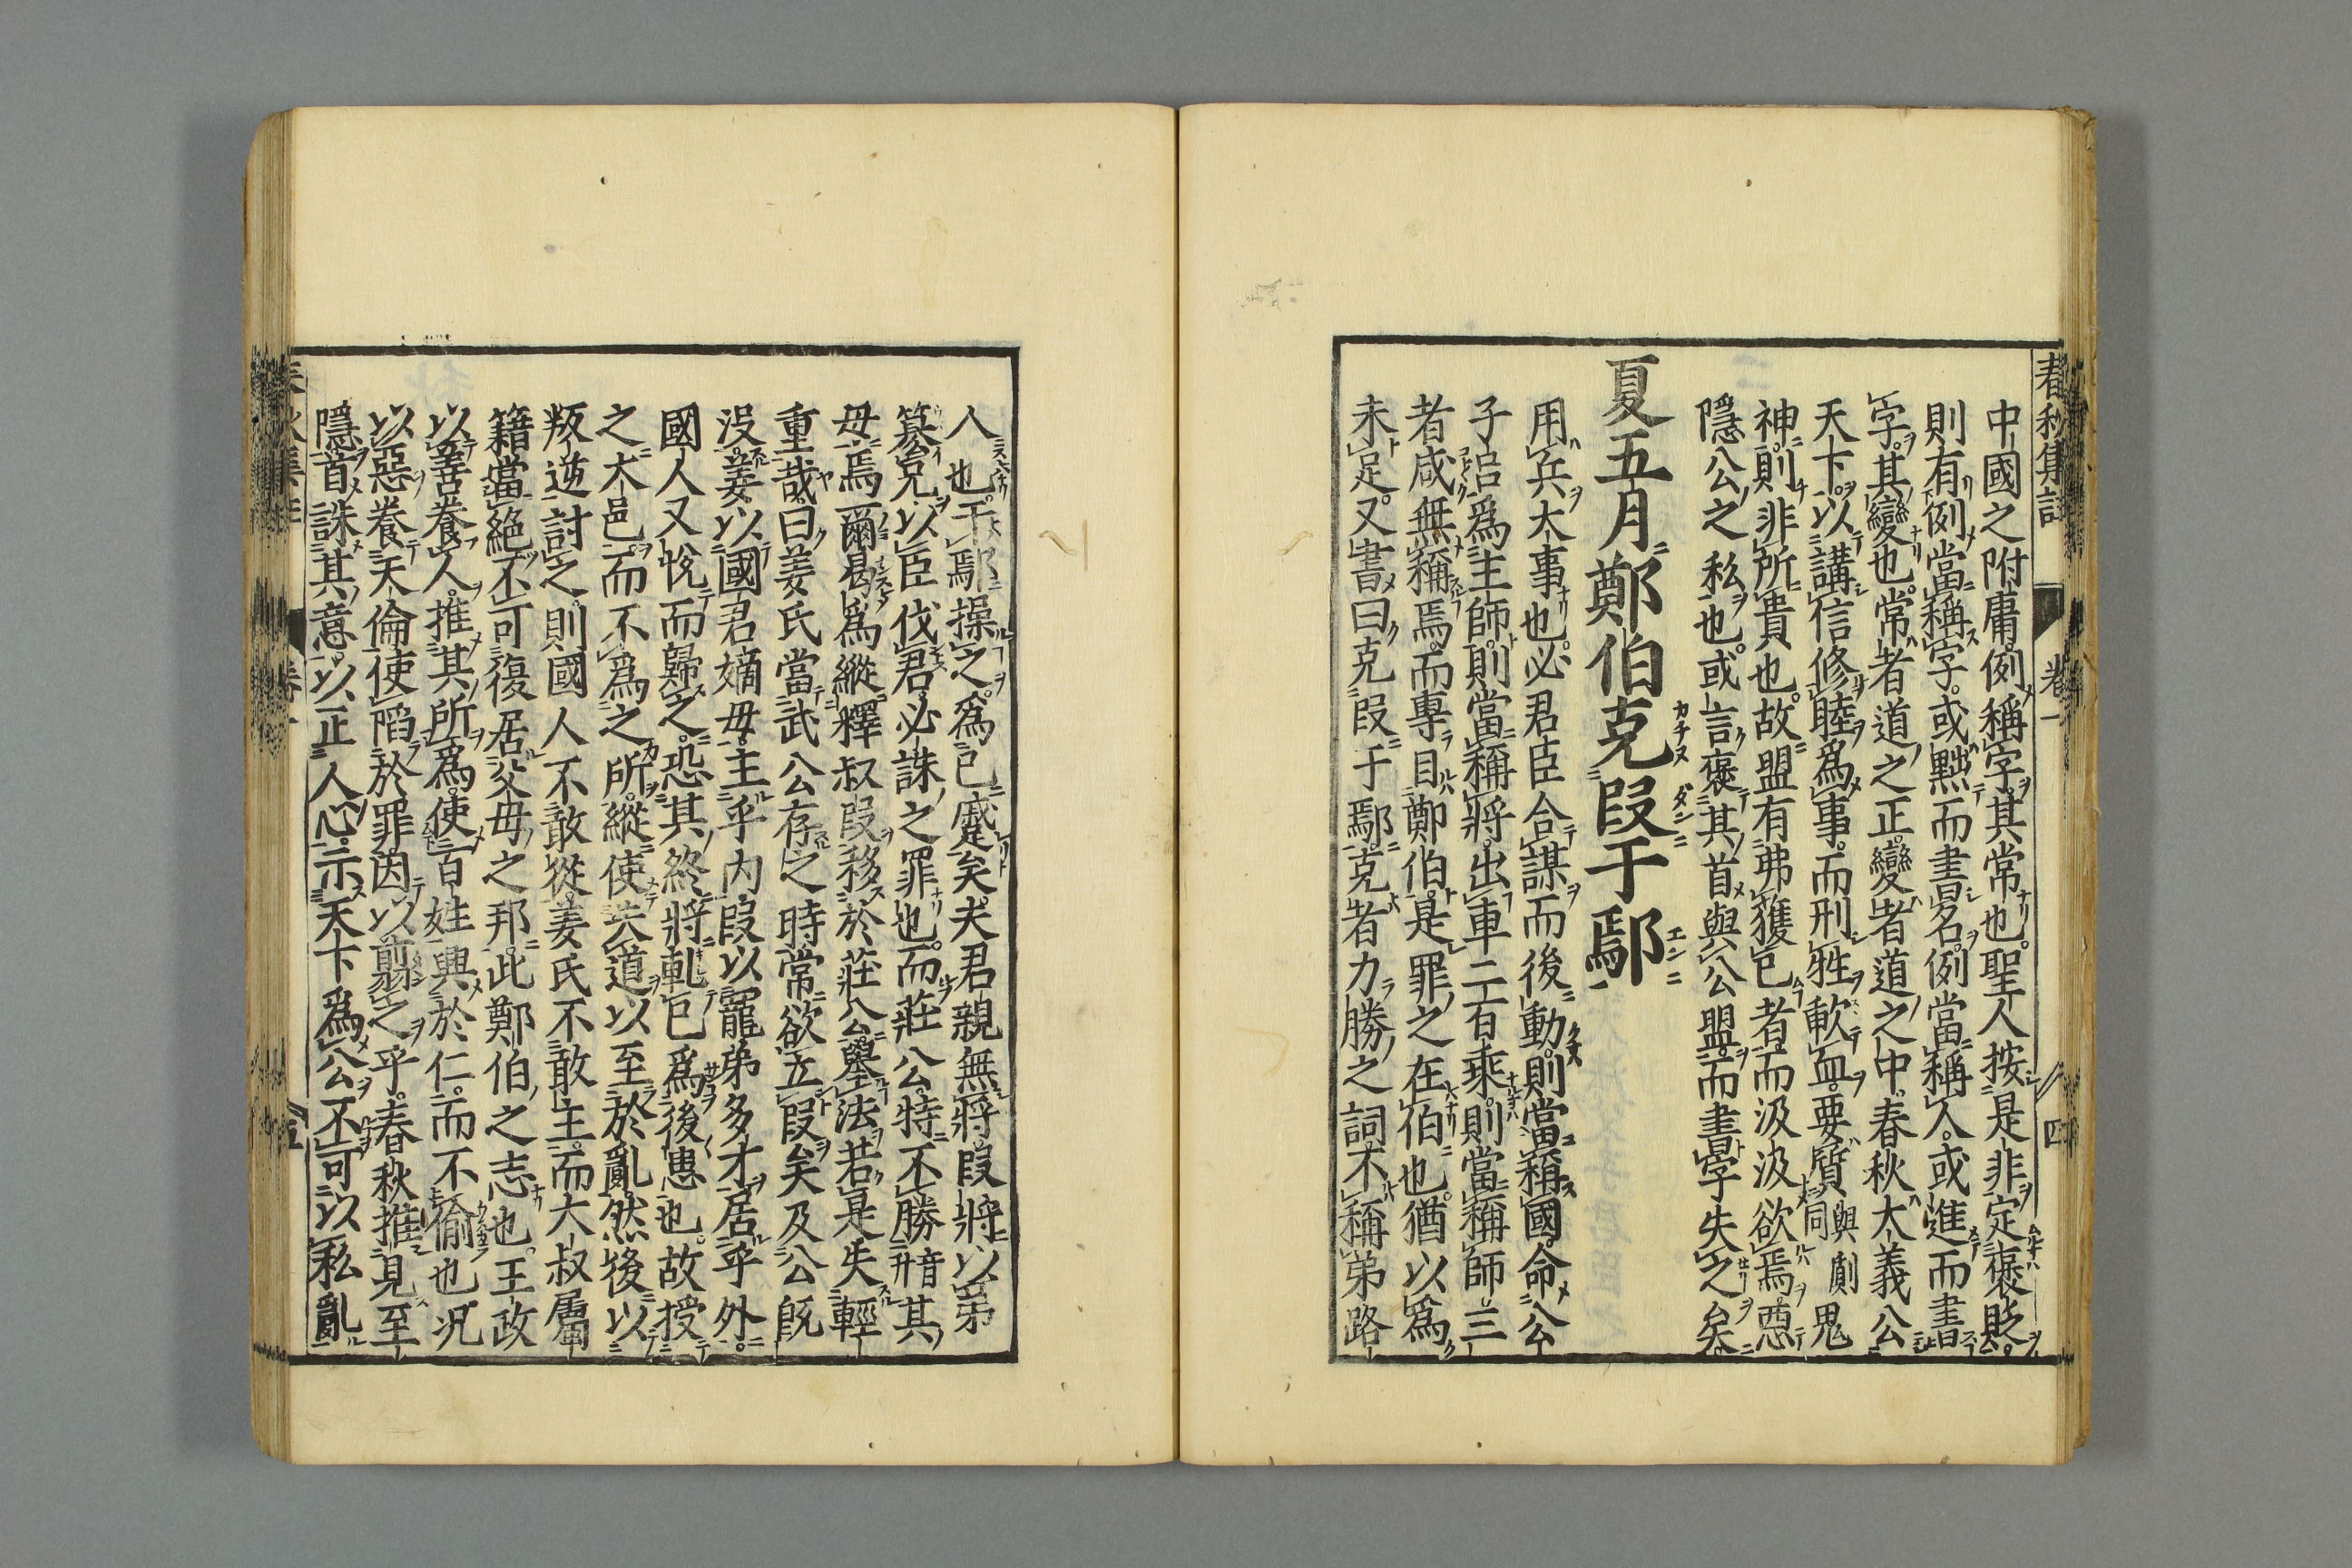 春秋集註 卷一 四
中國之附庸例稱字其常也聖人按是非定褒貶
則有例當稱字或黜而書名例當稱人或進而書
字其變也常者道之正變者道之中春秋大義公
天下以講信修睦爲事而刑牲歃血要質與劑同鬼
神則非所貴也故盟有弗獲已者而汲汲欲焉惡
隱公之私也或言褒其首與公盟而書字失之矣
夏五月鄭伯克段于鄢
用兵大事也必君臣合謀而後動則當稱國命公
子呂爲主帥則當稱將出車二百乘則當稱師三
者咸無稱焉而專目鄭伯是罪之在伯也猶以爲
未足又書曰克段于鄢克者力勝之詞不稱弟路
人也于鄢操之爲已蹙矣夫君親無將段將以弟
簒兄以臣伐君必誅之罪也而莊公特不勝音升其
母焉爾曷爲縱釋叔段移於莊公舉法若是失輕
重哉曰姜氏當武公存之時常欲立段矣及公既
沒姜以國君嫡母主乎内段以寵弟多才居乎外
國人又悅而歸之恐其終將軋已爲後患也故授
之大邑而不爲之所縱使失道以至於亂然後以
叛逆討之則國人不敢從姜氏不敢主而大叔屬
籍當絕不可復居父母之邦此鄭伯之志也王政
以善養人推其所爲使百姓興於仁而不偷也况
以惡養天倫使陷於罪因以翦之乎春秋推見至
隱首誅其意以正人心示天下爲公不可以私亂